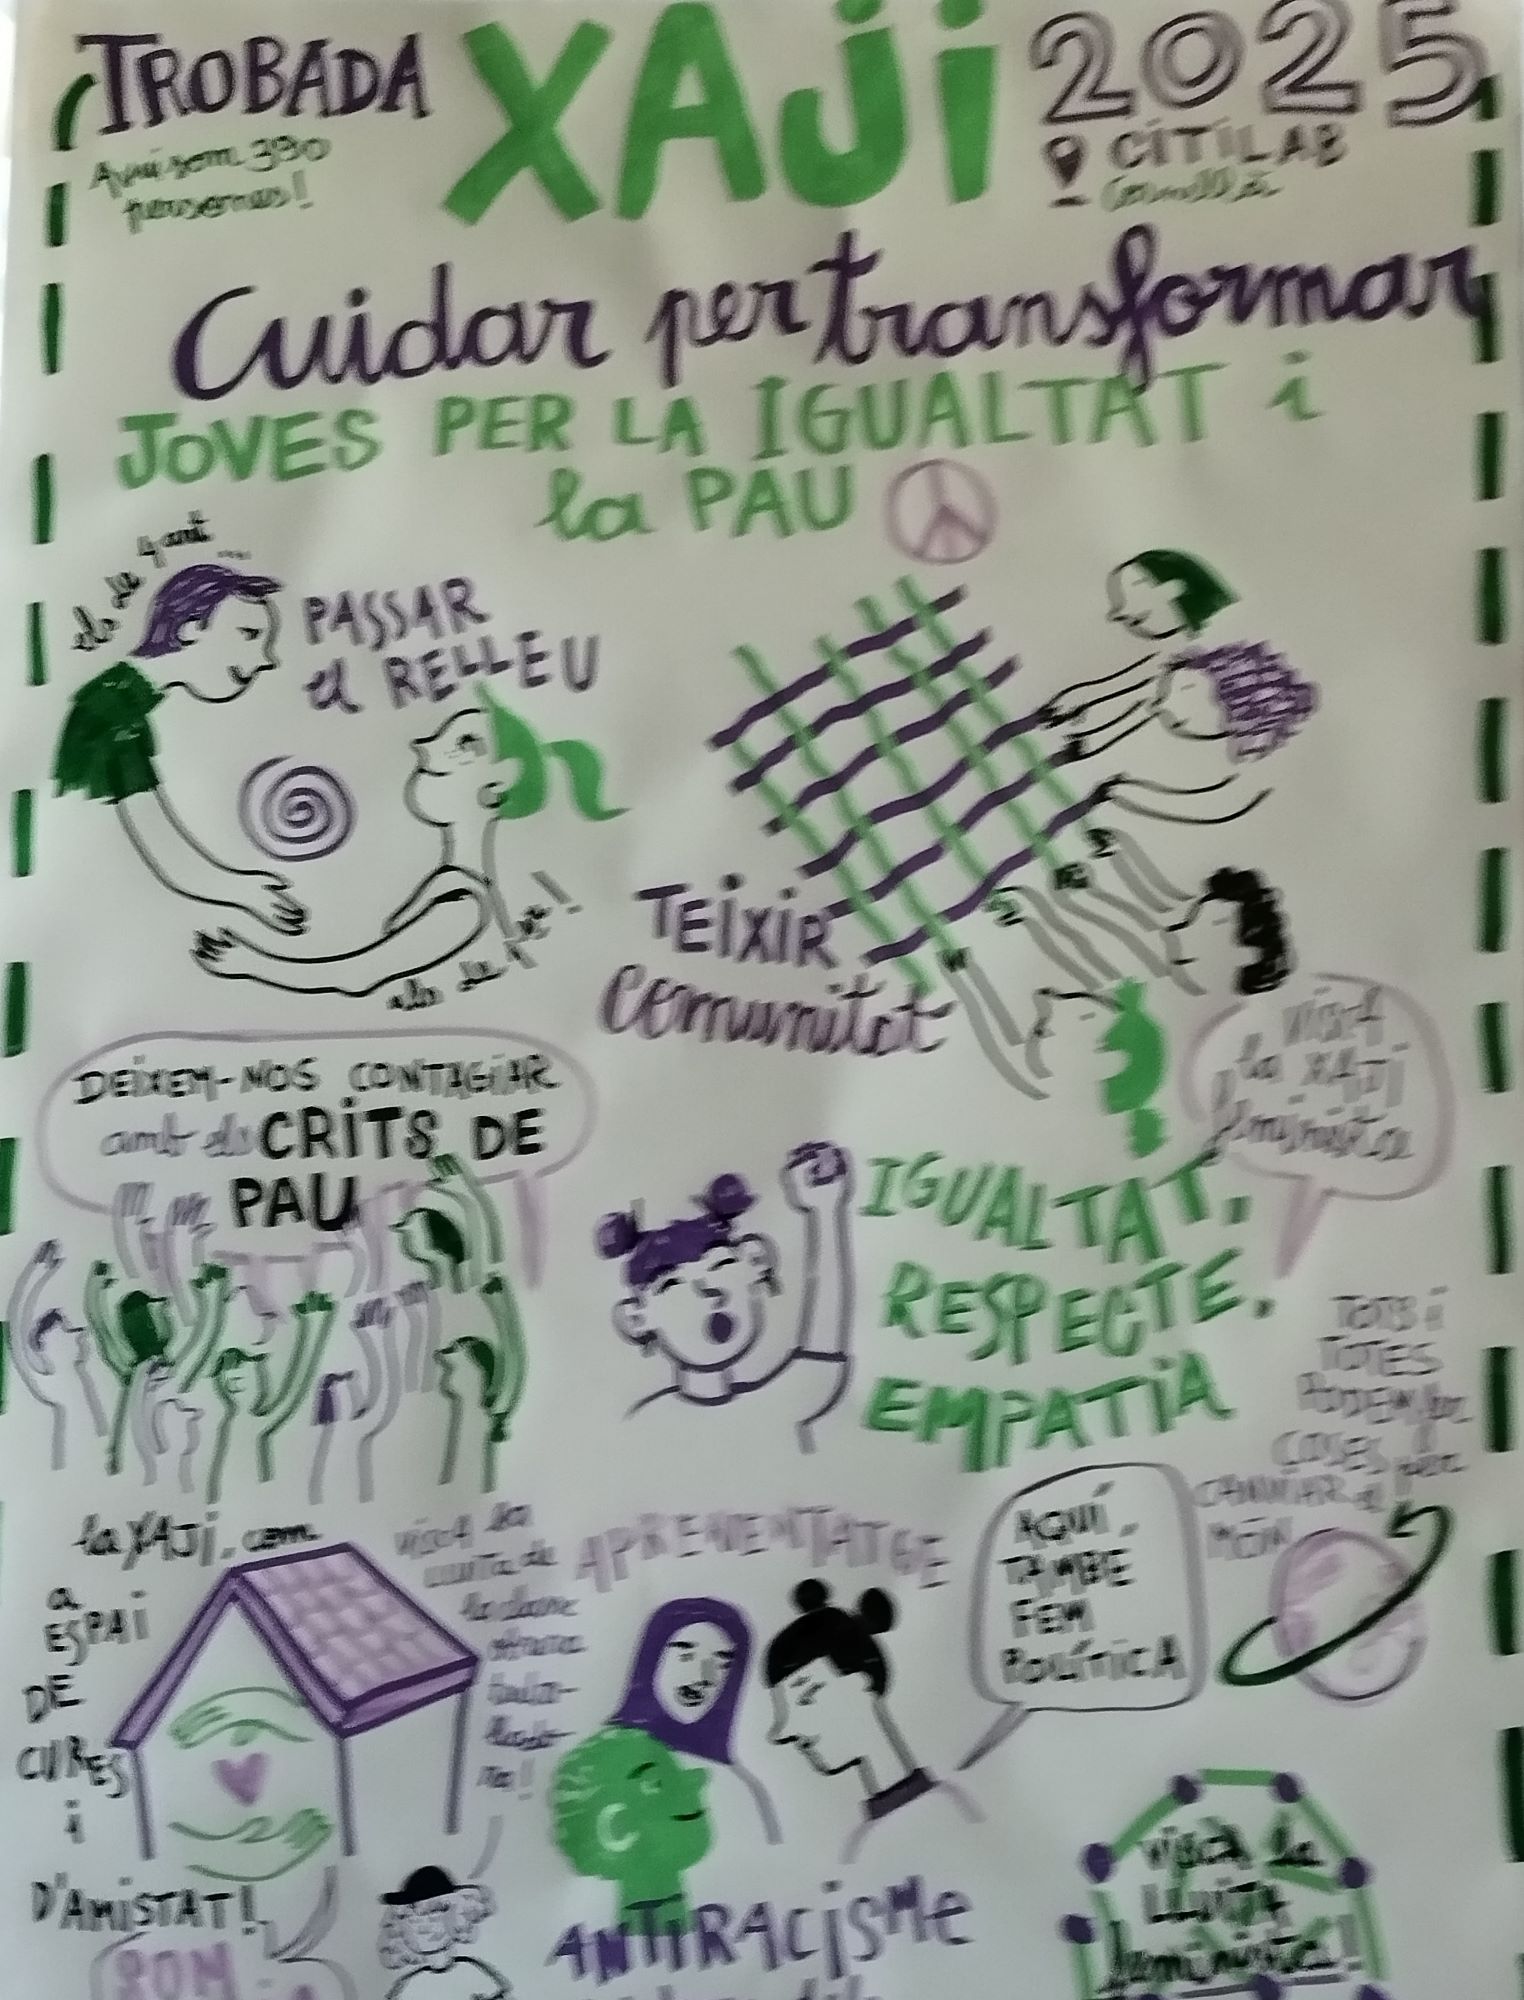 TROBADA
XAJi
2025
Avui som 390
persones!
CiTiLAB
Cornellà
Cuidar per transformar
JOVES PER LA IGUALTAT i
la PAU
els de 4art...
PASSAR
el RELLEU
als de 1er!
TEiXiR
comunitat
ViSCA
la XAJi
feminista
DEiXEM-NOS CONTAGiAR
amb els CRiTS DE
PAU
IGUALTAT,
RESPECTE,
EMPATiA
TOTS i
TOTES
PODEM fer
COSES per
CANViAR el
MÓN
la XAJi, com
a
ESPAi
DE
CURES
i
D'AMiSTAT!
ViSCA la
LLUiTA de
la classe
obrera
APRENENTATGE
AQUÍ,
TAMBÉ
FEM
POLÍTICA
ANTiRACiSME
ViSCA la
LLUiTA
feminista!